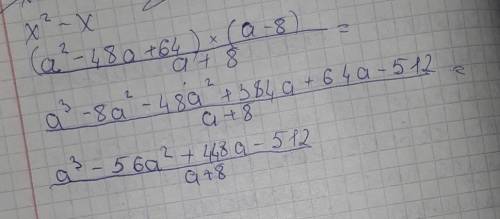 x² - x
(a² - 48a + 64) × (a - 8) =
a + 8
a³ - 8a² - 48a² + 384a + 64a - 512 =
a + 8
a³ - 56a² + 448a - 512
a + 8